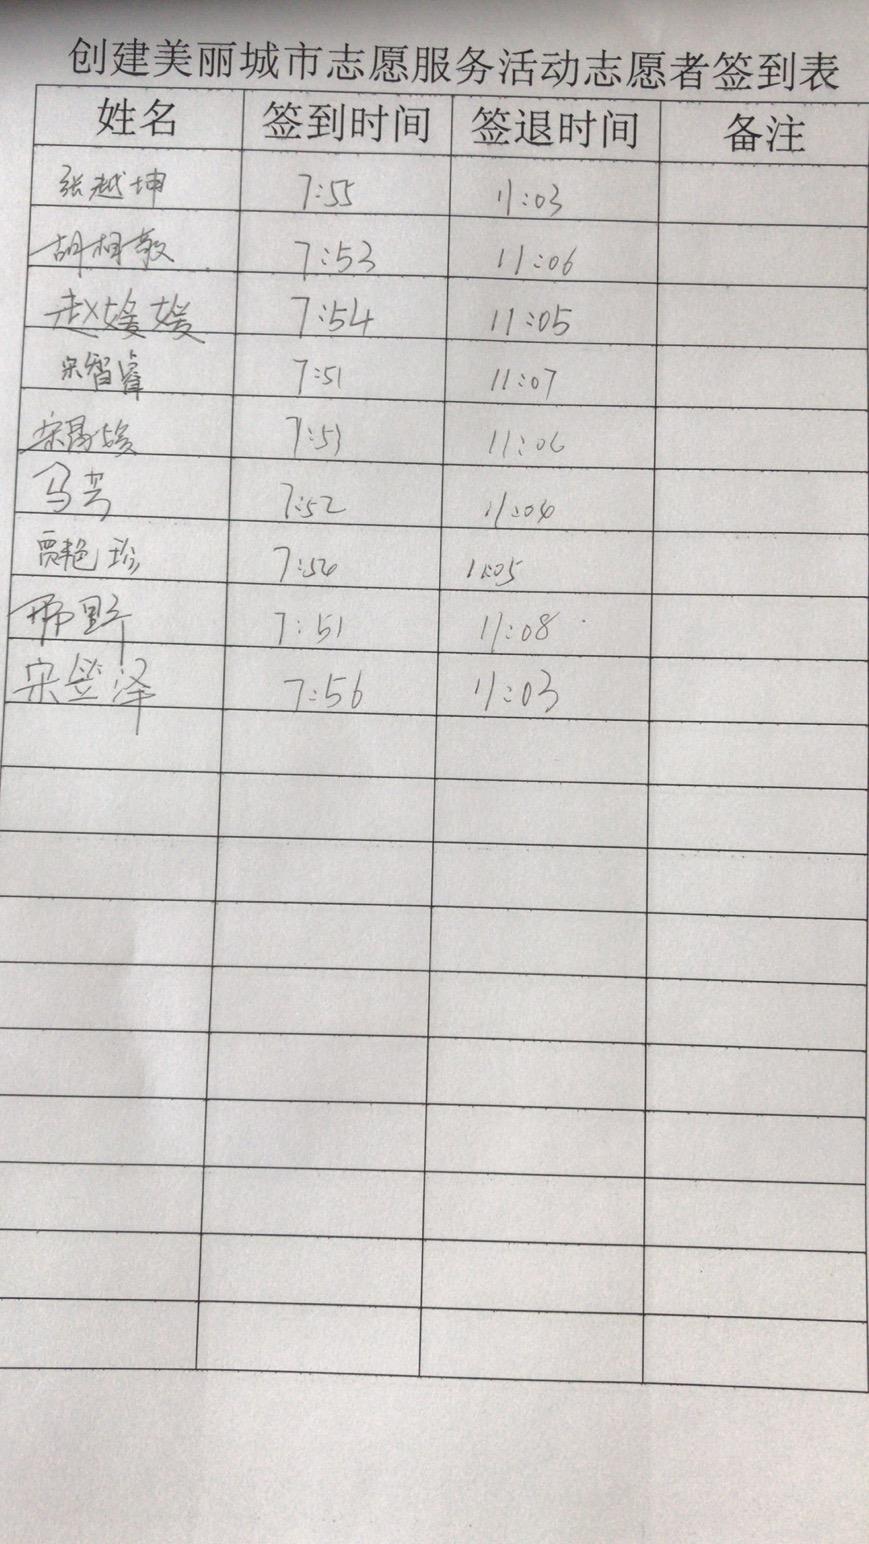 创建美丽城市志愿服务活动志愿者签到表
姓名 签到时间 签退时间 备注
张越坤 7:55 11:03
胡相敏 7:53 11:06
赵媛媛 7:54 11:05
宋智睿 7:51 11:07
宋 媛 7:53 11:06
马 7:52 11:04
贾艳珍 7:54 11:05
野 7:51 11:08
宋 泽 7:56 11:03